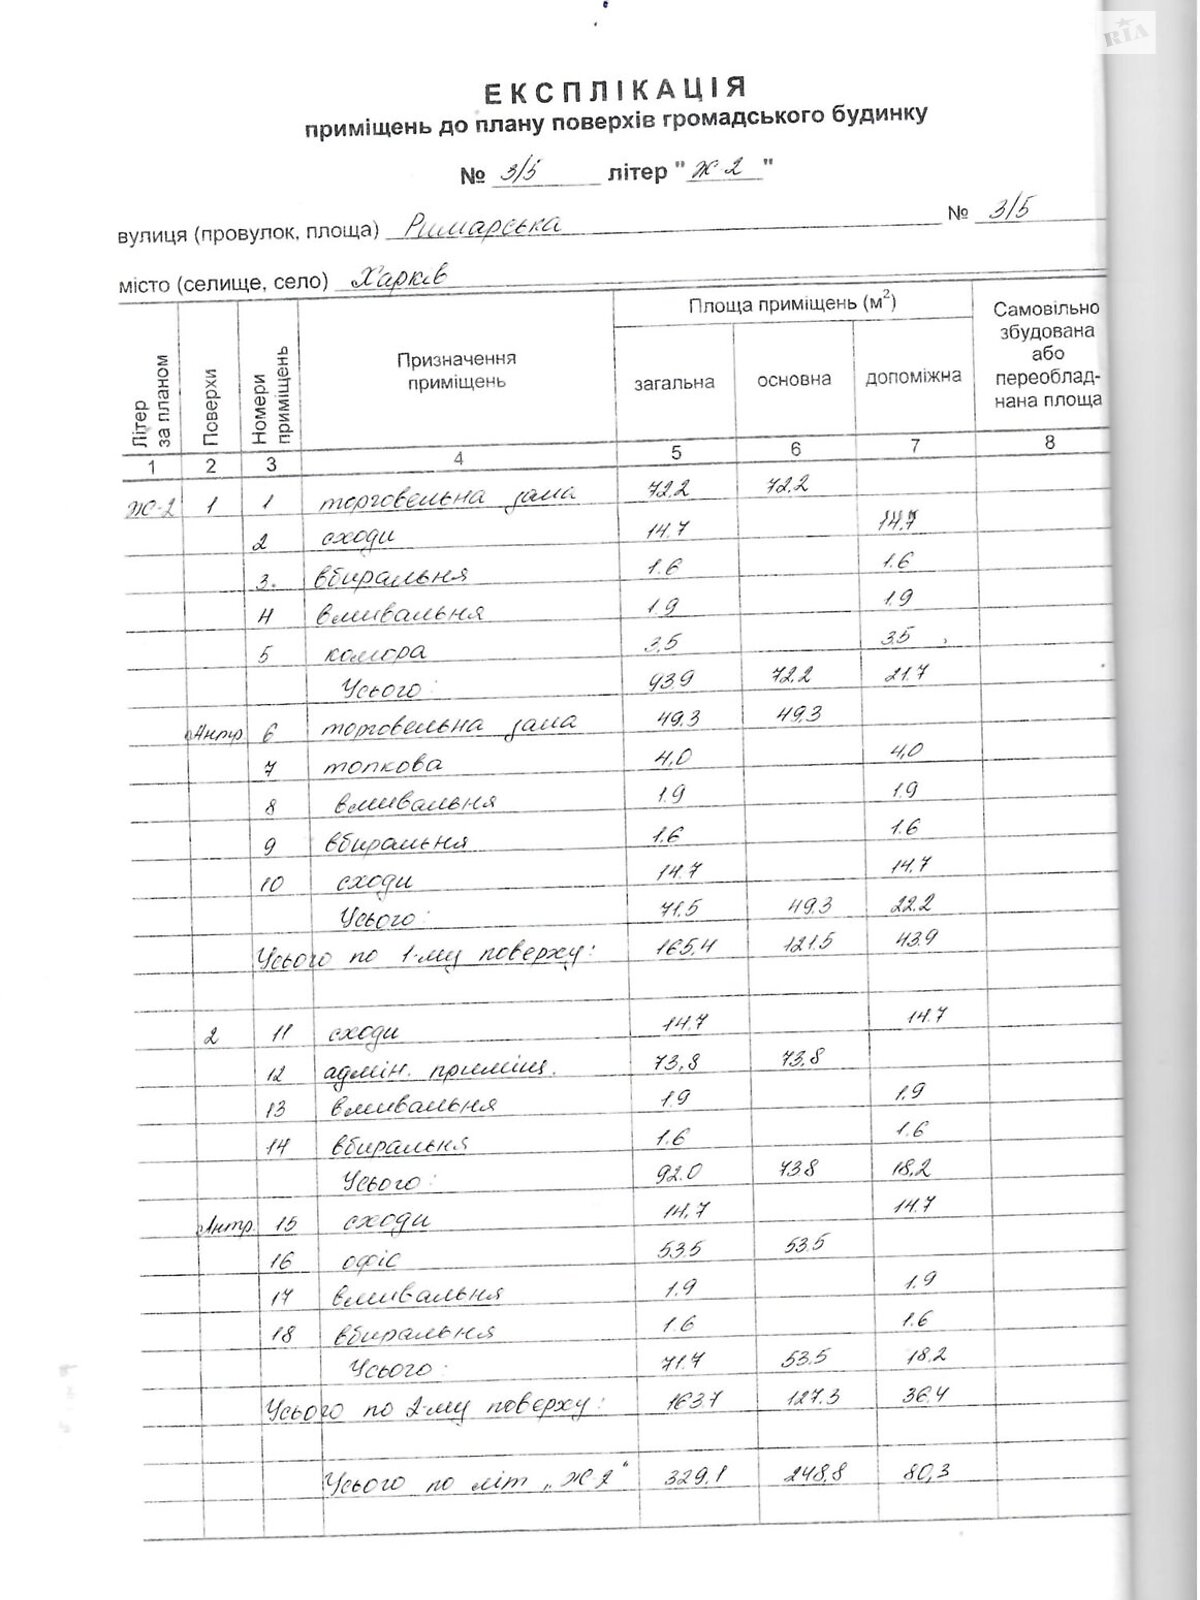 RIA
ЕКСПЛІКАЦІЯ
приміщень до плану поверхів громадського будинку
№ 3/5 літер "Ж-2"
вулиця (провулок, площа) Римарська № 3/5
місто (селище, село) Харків
Літер за планом Поверхи Номери приміщень Призначення приміщень Площа приміщень (м²) загальна основна допоміжна Самовільно збудована або переоблад-нана площа
1 2 3 4 5 6 7 8
Ж-2 1 1 торговельна зала 72,2 72,2
2 сходи 14.7 14.7
3. вбиральня 1.6 1.6
4 вмивальня 1.9 1.9
5 комора 3,5 3.5
Усього: 93.9 72.2 21.7
Антр. 6 торговельна зала 49,3 49,3
7 топкова 4,0 4,0
8 вмивальня 1.9 1.9
9 вбиральня 1.6 1.6
10 сходи 14.7 14.7
Усього: 71.5 49.3 22.2
Усього по 1-му поверху: 165,4 121.5 43.9
2 11 сходи 14.7 14.7
12 адмін. приміщ. 73,8 73,8
13 вмивальня 1.9 1.9
14 вбиральня 1.6 1.6
Усього: 92.0 73.8 18,2
Антр. 15 сходи 14,7 14.7
16 офіс 53.5 53.5
17 вмивальня 1.9 1.9
18 вбиральня 1.6 1.6
Усього: 71.7 53.5 18.2
Усього по 2-му поверху: 163.7 127.3 36.4
Усього по літ „Ж-2" 329,1 248,8 80,3